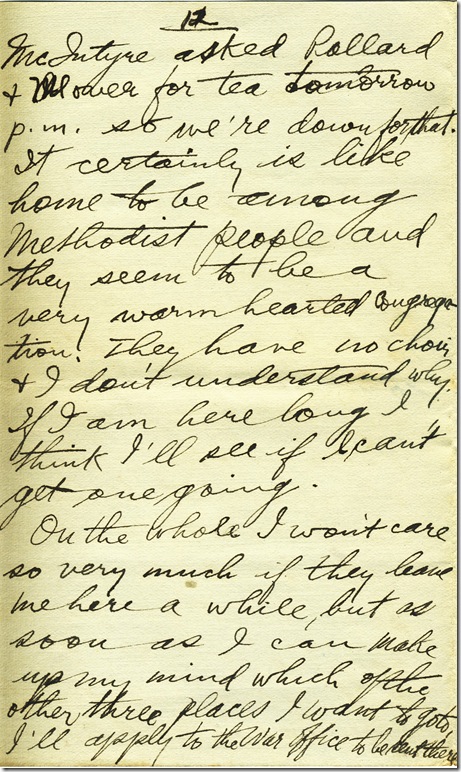 12
McIntyre asked Pollard
& Mower for tea tomorrow
p.m. so we're down for that.
It certainly is like
home to be among
Methodist people and
they seem to be a
very warm hearted Congrega
tion. They have no choir
& I don't understand why.
If I am here long I
think I'll see if I can't
get one going.
On the whole I won't care
so very much if they leave
me here a while, but as
soon as I can make
up my mind which of the
other three places I want to go to
I'll apply to the War Office to be sent there